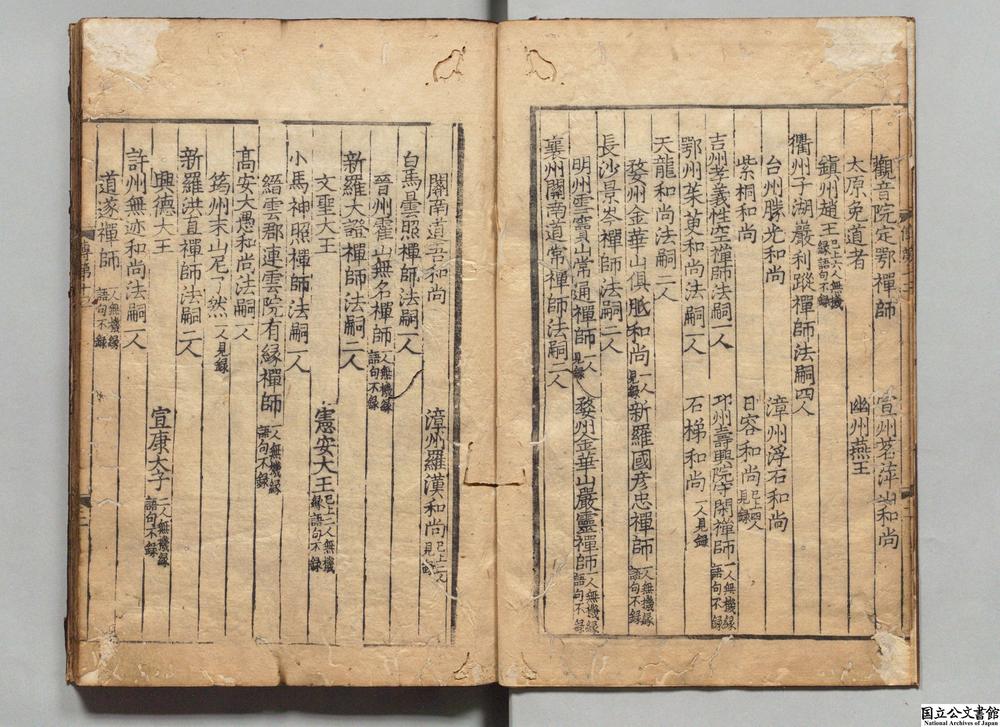 觀音院定鄂禪師 宣州茗萍山和尚
太原免道者 幽州燕王
鎮州趙王 已上六人無機緣語句不録
衢州子湖巖利蹤禪師法嗣四人
台州勝光和尚 漳州浮石和尚
紫桐和尚 日容和尚 已上四人見録
吉州孝義性空禪師法嗣一人 邛州壽興院守閑禪師 一人無機緣語句不録
鄂州茱萸和尚法嗣一人 石梯和尚 一人見録
天龍和尚法嗣二人
婺州金華山俱胝和尚 一人見録 新羅國彦忠禪師 一人無機緣語句不録
長沙景岑禪師法嗣二人
明州雪竇山常通禪師 一人見録 婺州金華山嚴靈禪師 一人無機緣語句不録
襄州關南道常禪師法嗣二人
關南道吾和尚 漳州羅漢和尚 已上二人見録
白馬曇照禪師法嗣一人
晉州霍山無名禪師 一人無機緣語句不録
新羅大證禪師法嗣二人
文聖大王 憲安大王 已上二人無機緣語句不録
小馬神照禪師法嗣一人
縉雲郡連雲院有緣禪師 一人無機緣語句不録
高安大愚和尚法嗣一人
筠州末山尼了然 一人見録
新羅洪直禪師法嗣二人
興德大王 宣康太子 二人無機緣語句不録
許州無迹和尚法嗣一人
道遂禪師 一人無機緣語句不録
国立公文書館
National Archives of Japan